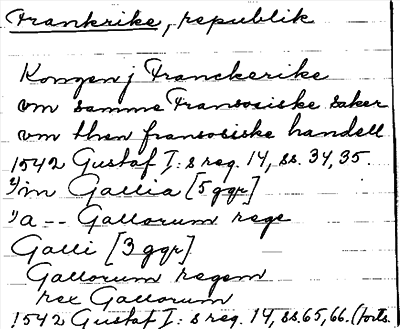 Frankrike, republik
Kongen j Franckerike
om samme Fransosiske saker
om then fransosiske handell
1542 Gustaf I:s reg. 14, ss. 34, 35.
in Gallia [5 ggr]
a -- Gallorum rege
Galli [3 ggr]
Gallorum regem
rex Gallorum
1542 Gustaf I:s reg. 14, ss. 65, 66. (forts.